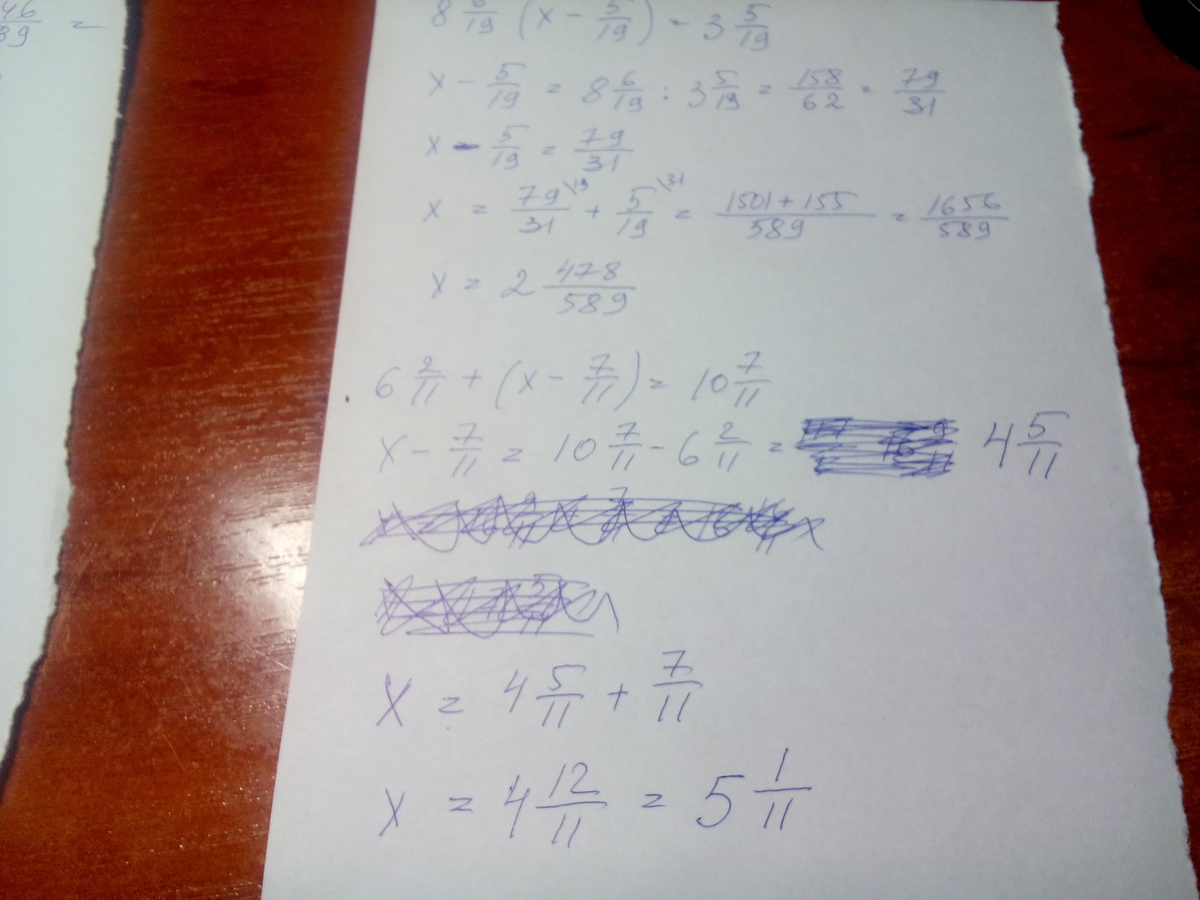 46/39 =
8 6/19 (x - 5/19) = 3 5/19
x - 5/19 = 8 6/19 : 3 5/19 = 158/62 = 79/31
x - 5/19 = 79/31
x = 79/31 \19 + 5/19 \31 = 1501+155/589 = 1656/589
x = 2 478/589
6 2/11 + (x - 7/11) = 10 7/11
x - 7/11 = 10 7/11 - 6 2/11 = 4 5/11
x = 4 5/11 + 7/11
x = 4 12/11 = 5 1/11